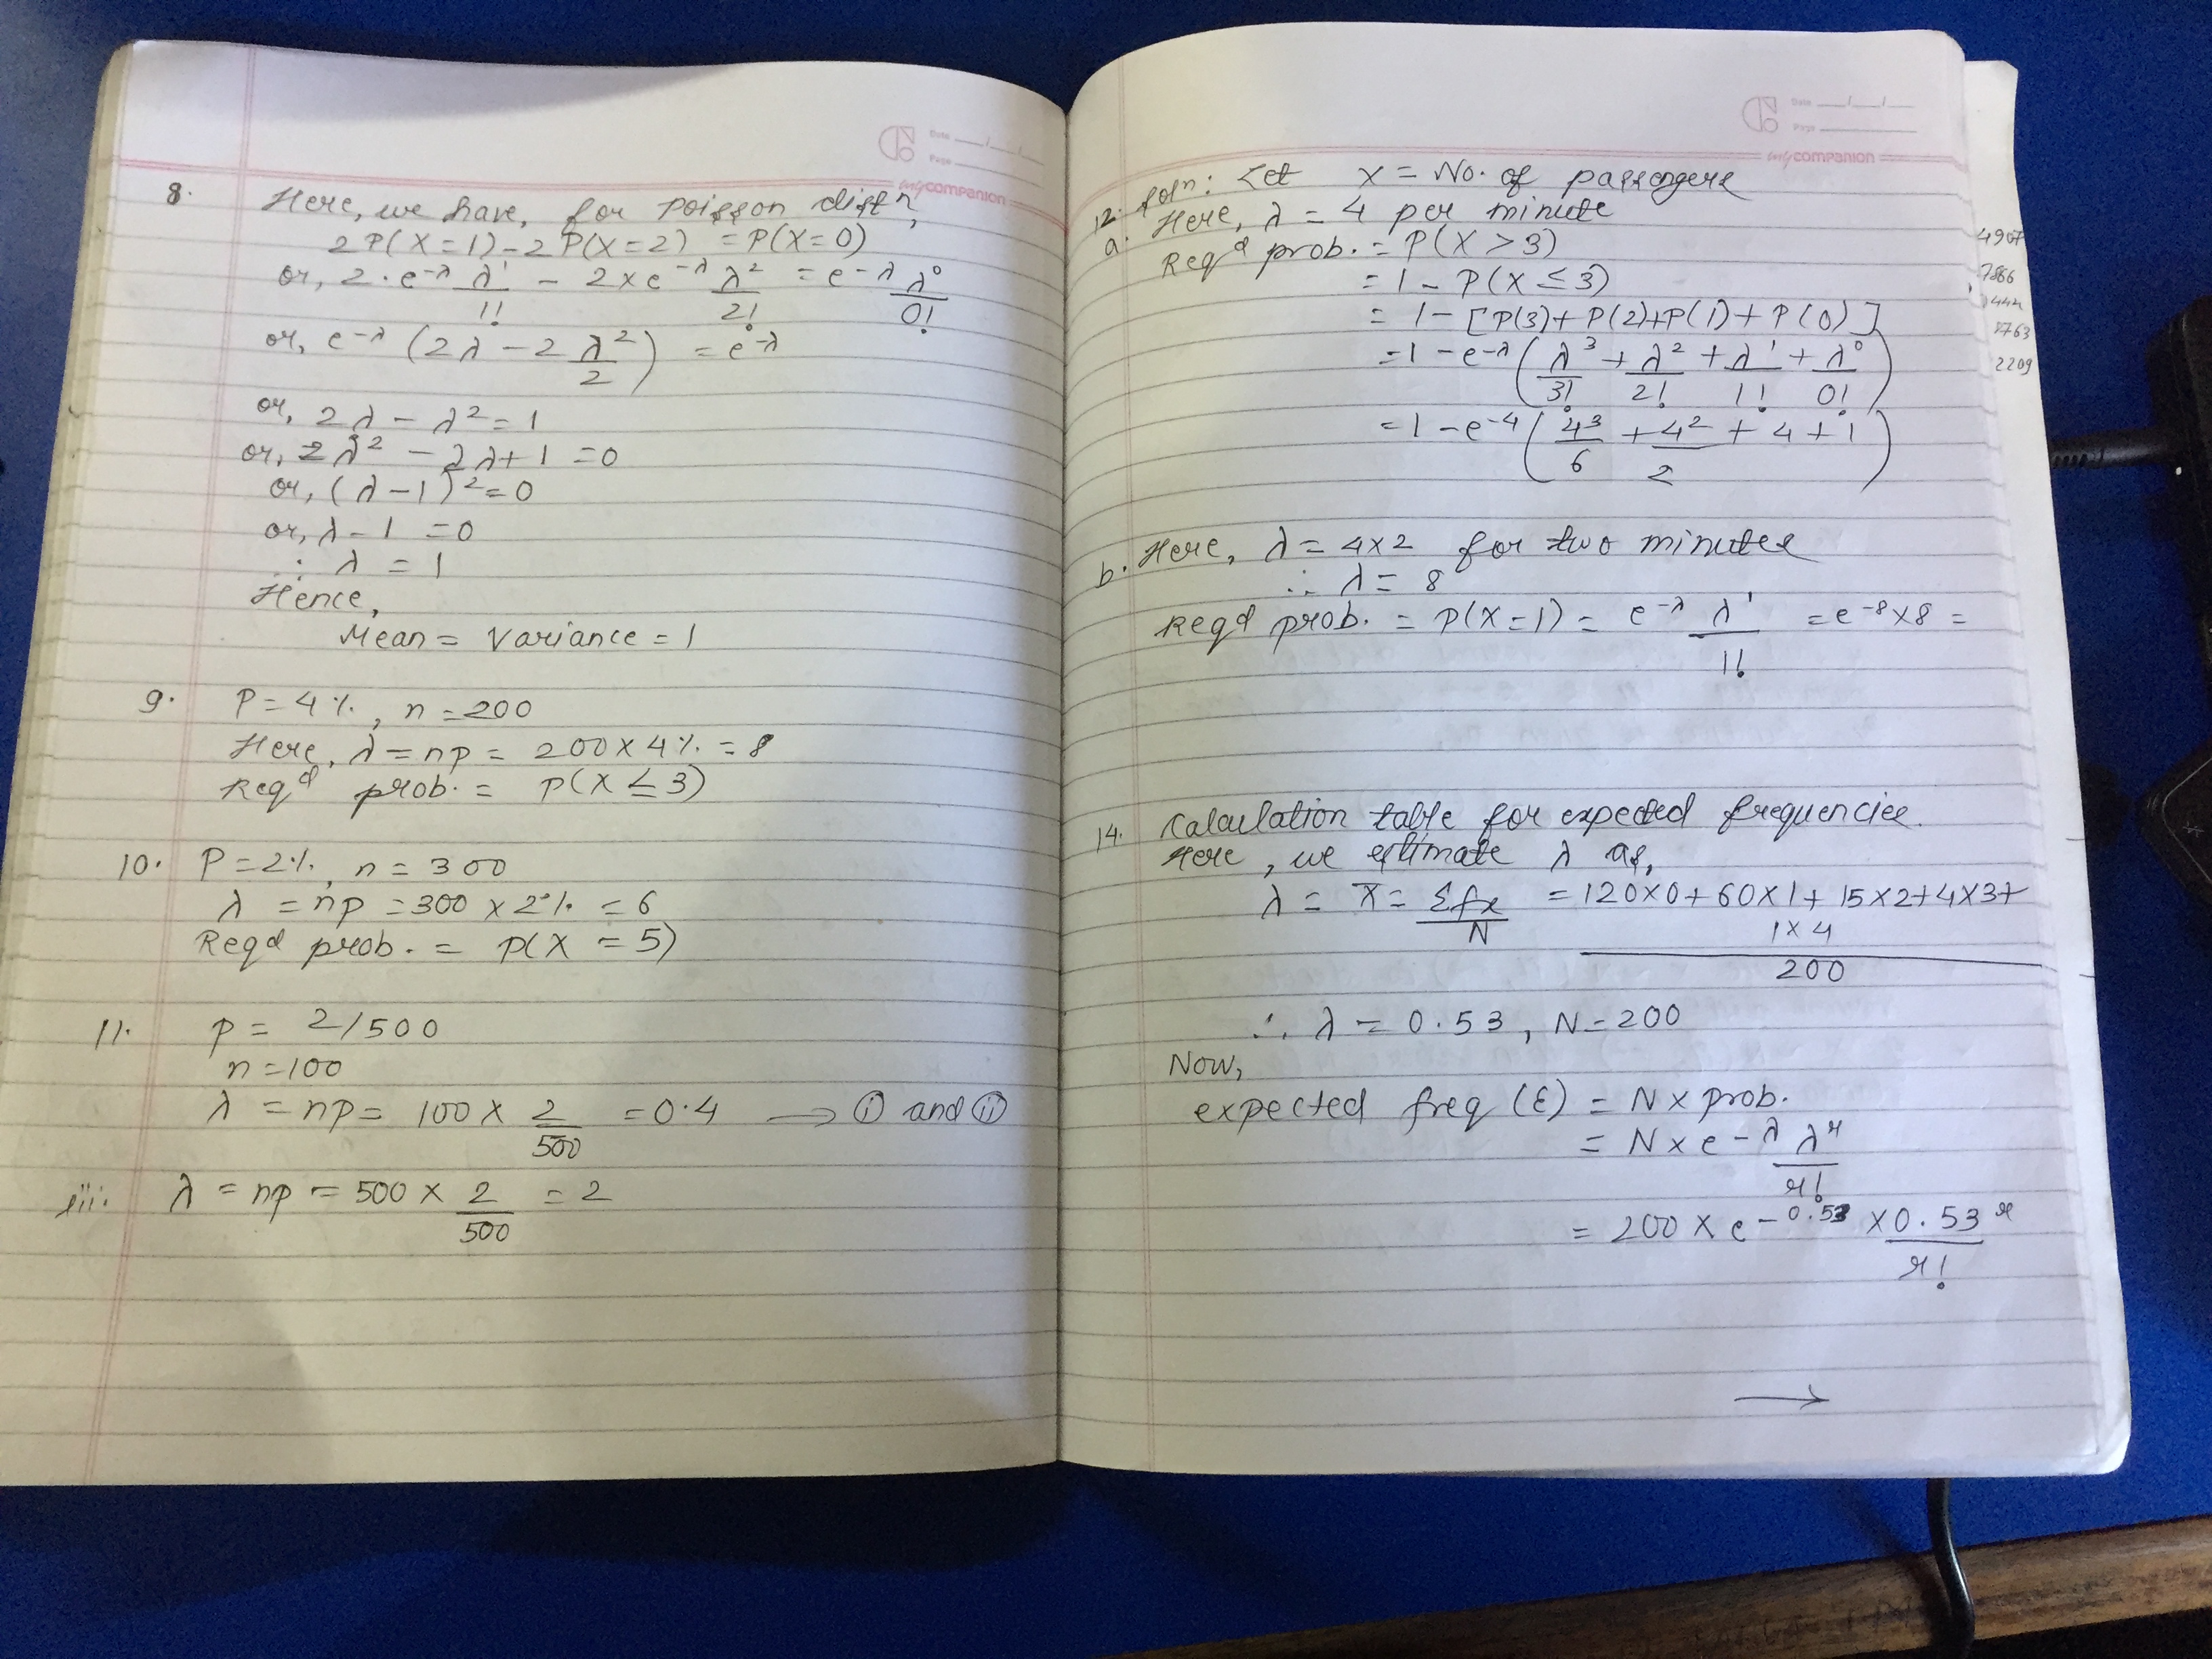 8. Here, we have, for poisson distn,
2P(X=1)-2P(X=2) = P(X=0)
or, 2·e-λ λ¹/1! - 2×e-λ λ²/2! = e-λ λ⁰/0!
or, e-λ (2λ - 2 λ²/2) = e-λ
or, 2λ - λ² = 1
or, 2λ² - 2λ + 1 = 0
or, (λ-1)² = 0
or, λ-1 = 0
∴ λ = 1
Hence,
Mean = Variance = 1
9. P = 4%, n = 200
Here, λ = np = 200×4% = 8
Reqd prob. = P(X ≤ 3)
10. P = 2% n = 300
λ = np = 300×2% = 6
Reqd prob. = P(X = 5)
11. P = 2/500
n = 100
λ = np = 100 × 2/500 = 0.4 → (i) and (ii)
iii. λ = np = 500 × 2/500 = 2
my companion
Date
Page
12. soln: Let X = No. of passengers
a. Here, λ = 4 per minute
Reqd prob. = P(X > 3)
= 1 - P(X ≤ 3)
= 1 - [P(3)+P(2)+P(1)+P(0)]
= 1 - e-λ (λ³/3! + λ²/2! + λ¹/1! + λ⁰/0!)
= 1 - e-4 (4³/6 + 4²/2 + 4 + 1)
b. Here, λ = 4×2 for two minutes
∴ λ = 8
Reqd prob. = P(X=1) = e-λ λ¹/1! = e-8×8 =
14. Calculation table for expected frequencies.
Here, we estimate λ as,
λ = x̄ = Σfx/N = 120×0+60×1+15×2+4×3+
1×4
200
∴ λ = 0.53, N = 200
Now,
expected freq (E) = N × prob.
= N × e-λ λx/x!
= 200 × e-0.53 × 0.53x/x!
→
my companion
Date
Page
2209